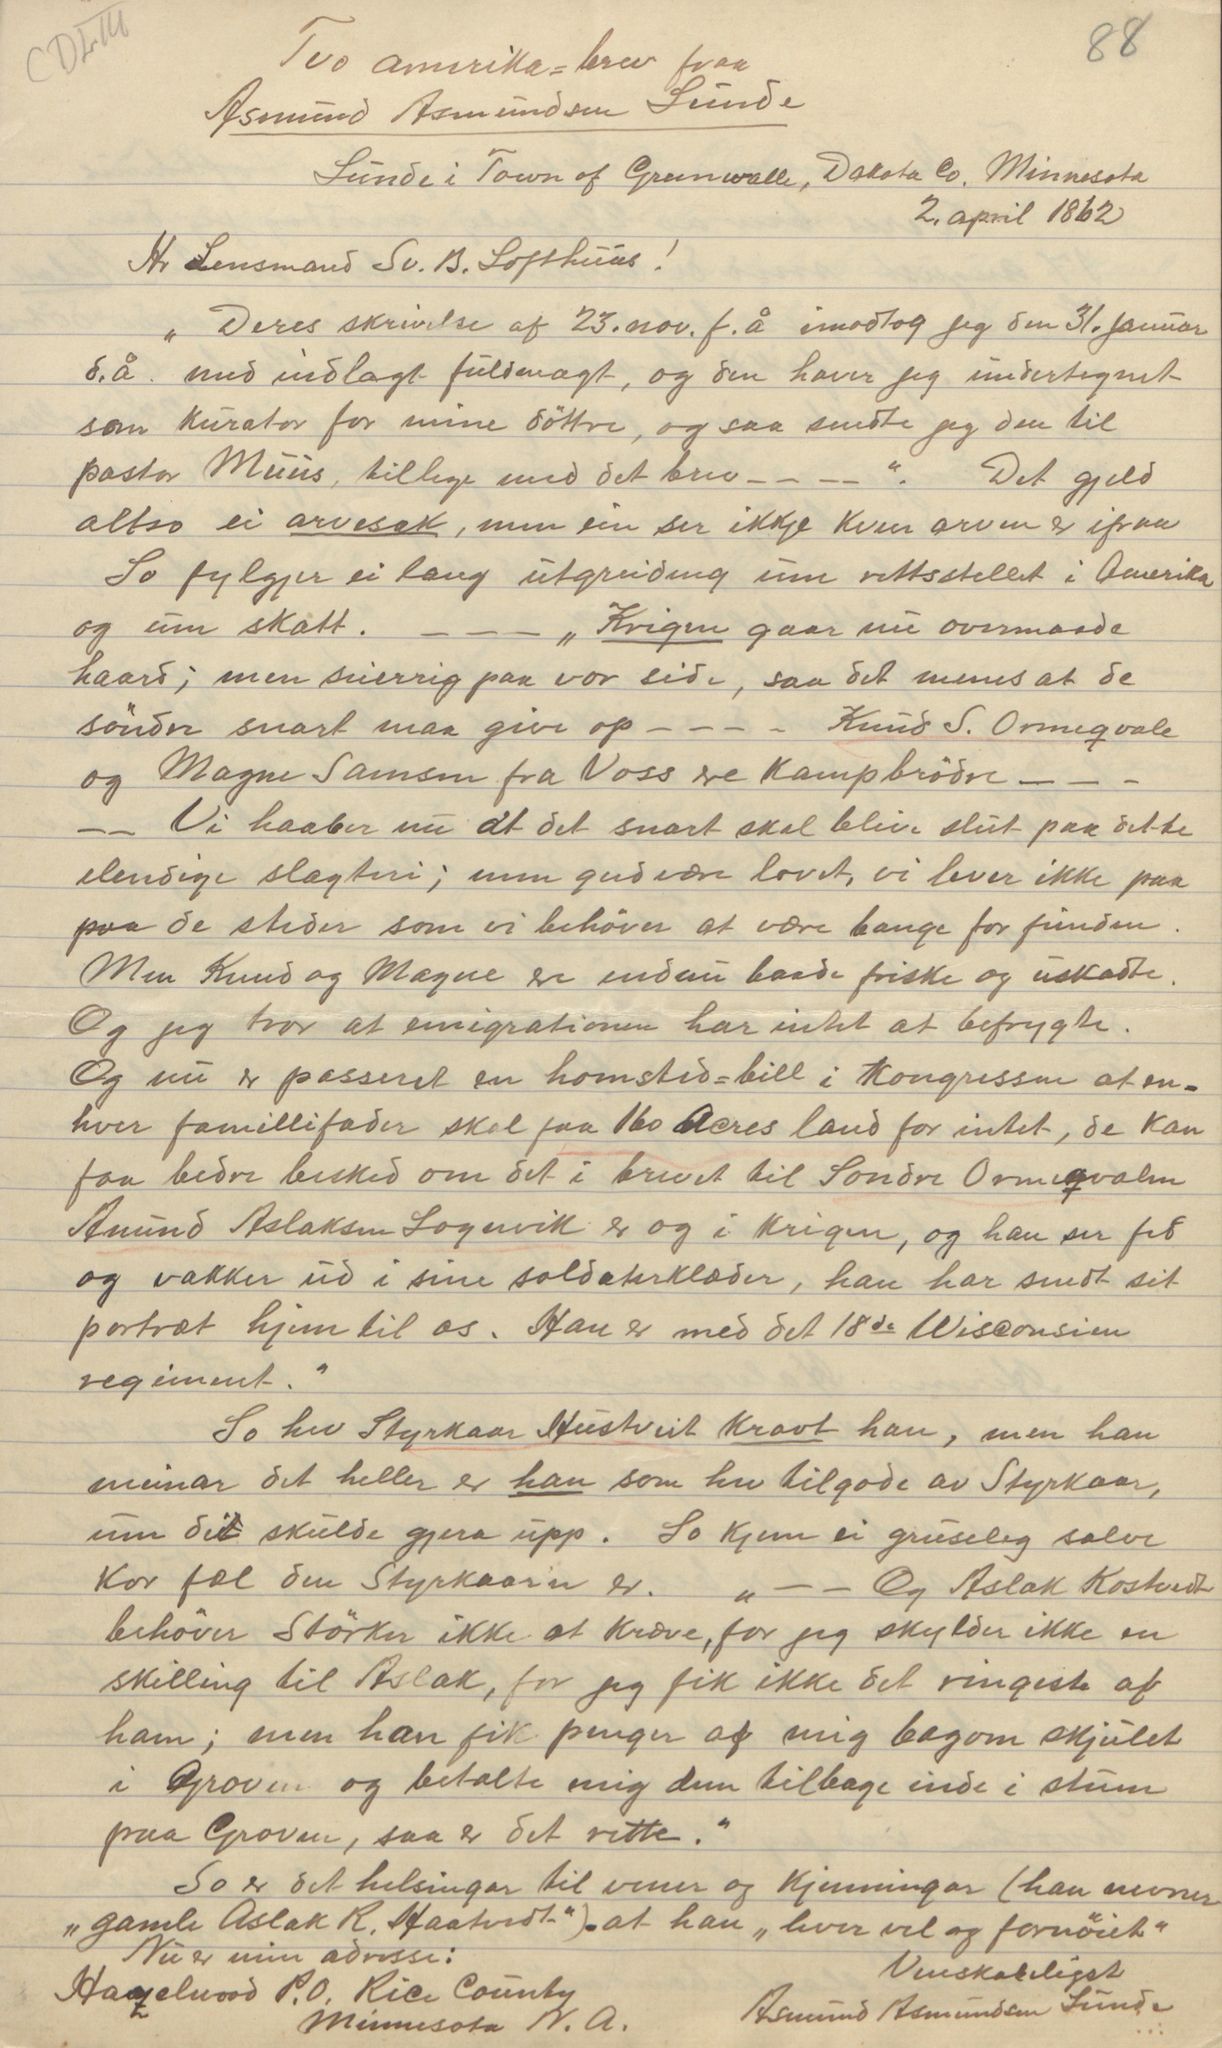 CDLIII
88
Tvo amerika=brev fraa
Asmund Asmundsen Lunde
Lunde i Town of Grunwalle, Dakota Co. Minnesota
2. april 1862
Hr Lensmand Sv. B. Lofthuus!
„Deres skrivelse af 23. nov. f. å imodtog jeg den 31. januar
d. å. med indlagt fuldmagt, og den haver jeg undertegnet
som kurator for mine döttre, og saa sendte jeg den til
pastor Muus, tillige med det brev – – – –“. Det gjeld
altso ei arvesak, men ein ser ikkje kven arven er ifraa
So fylgjer ei lang utgreiding um rettsstellet i Amerika
og um skatt. – – – – „Krigen gaar nu overmaade
haard; men seierrig paa vor side, saa det menes at de
sönder snart maa give op – – – – Knud S. Ormeqvale
og Magne Samsen fra Voss ere kampbrödre – – –
– – Vi haaber nu at det snart skal blive slut paa dette
elendige slagteri; men gud være lovet, vi lever ikke paa
paa de steder som vi behöver at være bange for fienden.
Men Knud og Magne ere endnu baade friske og uskadte.
Og jeg tror at emigrationen har intet at befrygte.
Og nu er passeret en homsted=bill i Kongressen at en=
hver famillifader skal faa 160 Acres land for intet, de kan
faa bedre besked om det i brevet til Sondre Ormeqvalen
Anund Aslaksen Logervik er og i krigen, og han ser fed
og vakker ud i sine soldaterklæder, han har sendt sit
portræt hjem til os. Han er med det 18de Wisconsien
regiment.“
So hev Styrkaar Hustveit kravt han, men han
meinar det heller er han som hev tilgode av Styrkaar,
um dei skulde gjera upp. So kjem ei gruseleg salve
kor fæl den Styrkaar'n er. „– – – Og Aslak Kostvedt
behöver Störker ikke at kræve, for jeg skylder ikke en
skilling til Aslak, for jeg fik ikke det ringeste af
ham; men han fik penger af mig bagom skjulet
i Groven og betalte mig dem tilbage inde i stuen
paa Groven, saa er det rette.“
So er det helsingar til vener og kjenningar (han nevner
„gamle Aslak R. Haatvedt“). at han „lever vel og fornöiet“
Nu er min adresse:
Hazelwood P.O. Rice County
Minnesota N. A.
Venskabeligst
Asmund Asmundsen Lunde